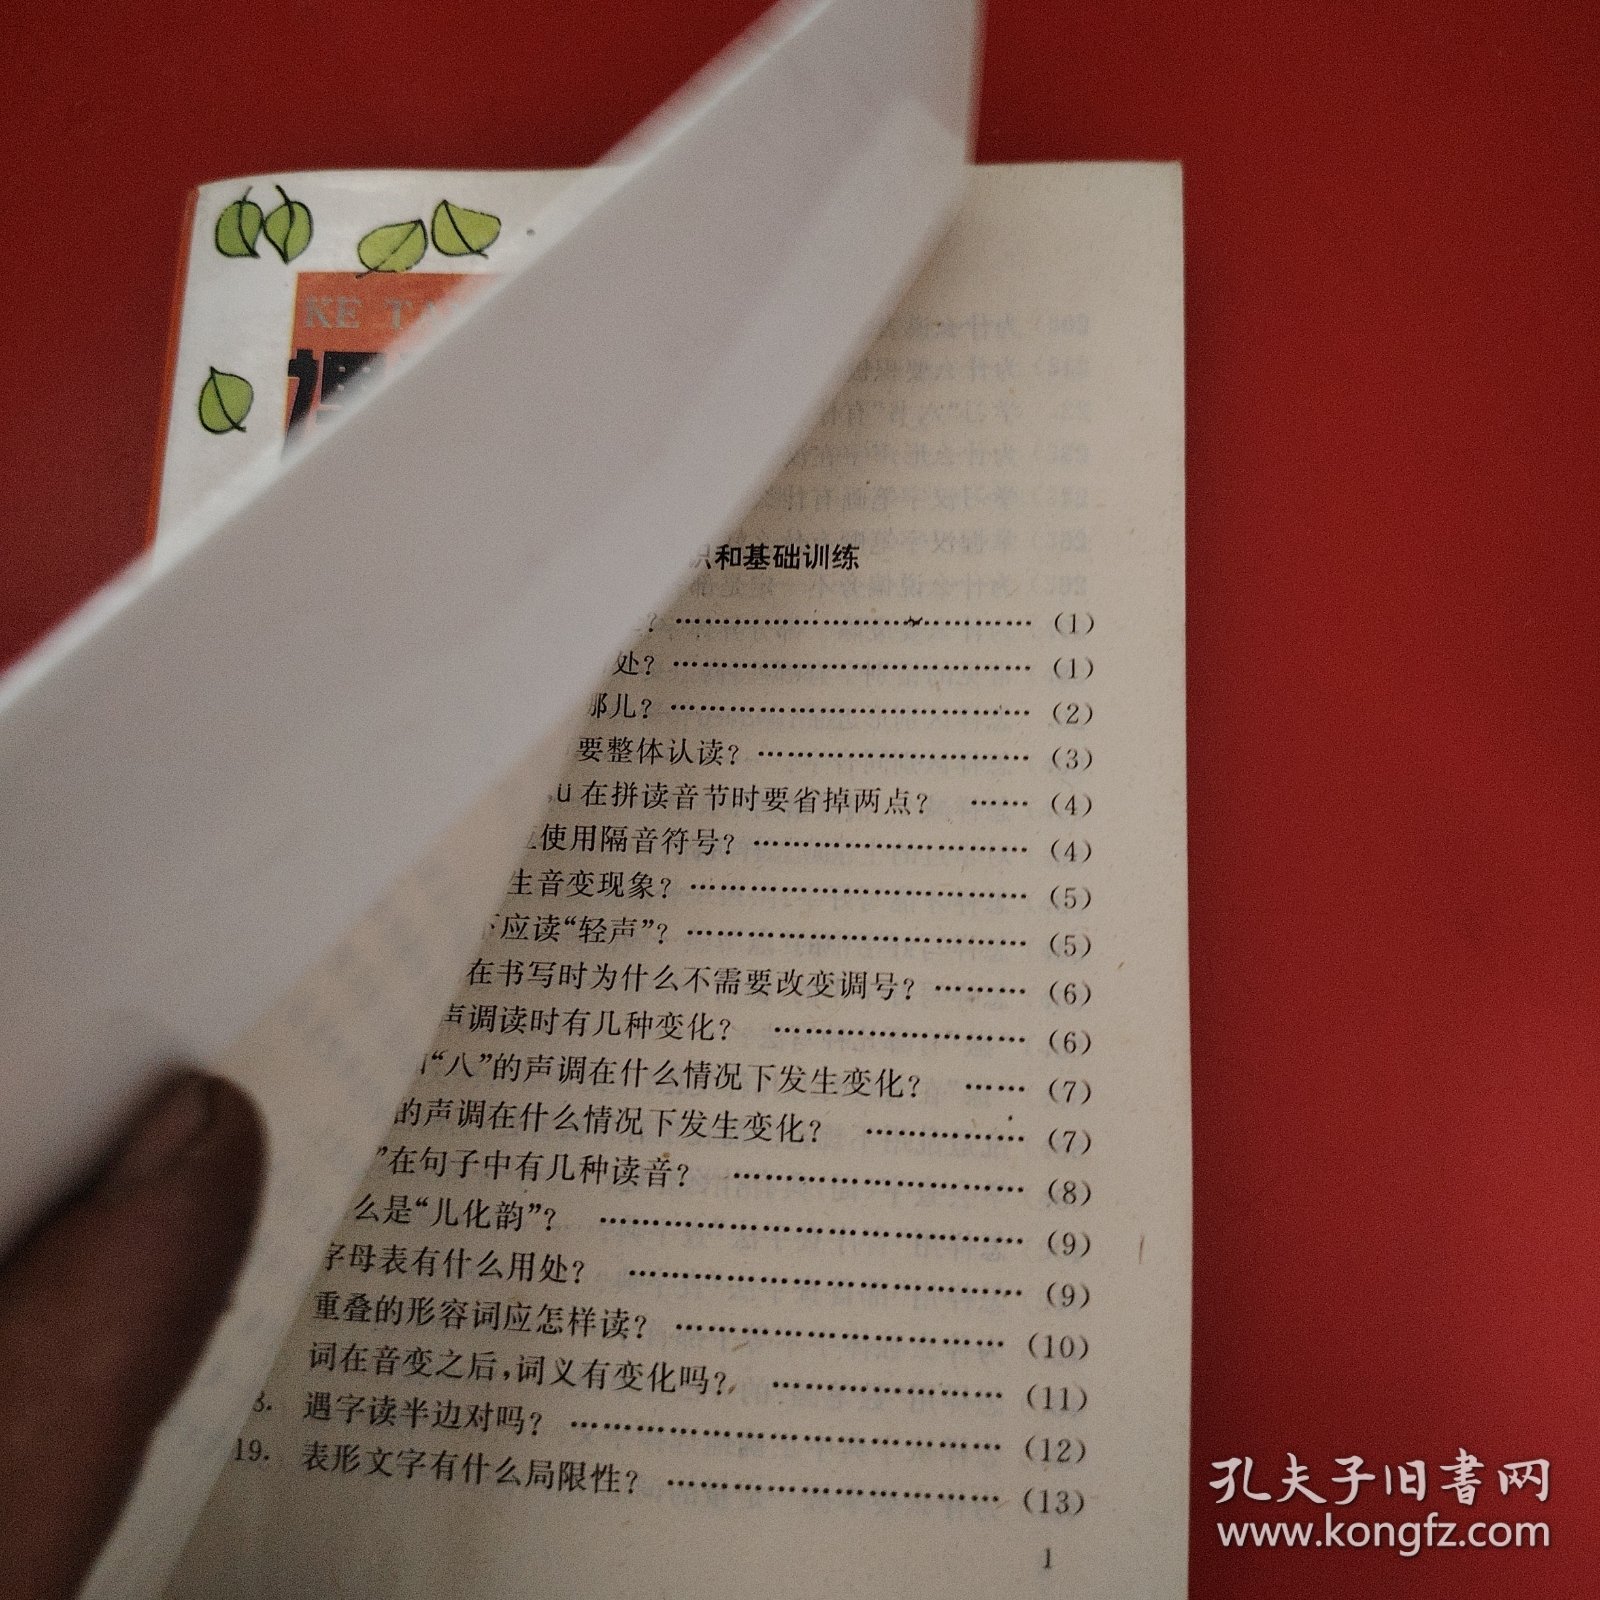 KE TA
和基础训练
? (1)
处? (1)
那儿? (2)
要整体认读? (3)
,ü在拼读音节时要省掉两点? (4)
使用隔音符号? (4)
生音变现象? (5)
下应读“轻声”? (5)
在书写时为什么不需要改变调号? (6)
声调读时有几种变化? (6)
“八”的声调在什么情况下发生变化? (7)
的声调在什么情况下发生变化? (7)
”在句子中有几种读音? (8)
么是“儿化韵”? (9)
字母表有什么用处? (9)
重叠的形容词应怎样读? (10)
词在音变之后,词义有变化吗? (11)
8. 遇字读半边对吗? (12)
19. 表形文字有什么局限性? (13)
1
孔夫子旧书网
www.kongfz.com